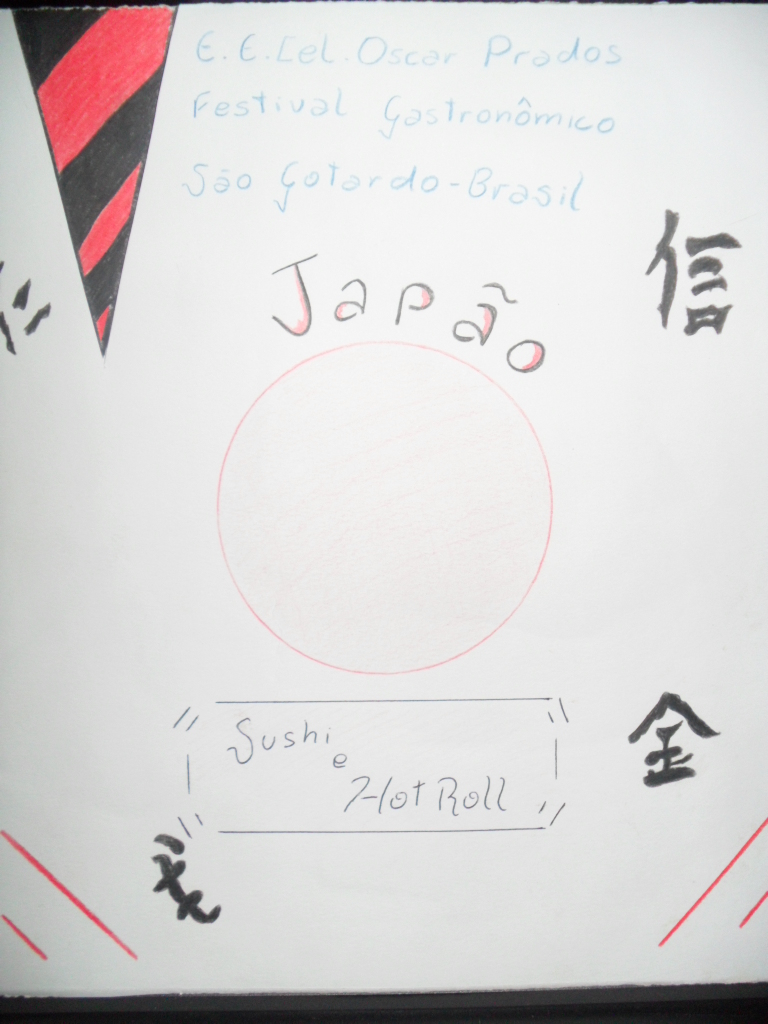 E. E. Cel. Oscar Prados
Festival Gastronômico
São Gotardo-Brasil
信
Japão
Sushi
e
Hot Roll
金